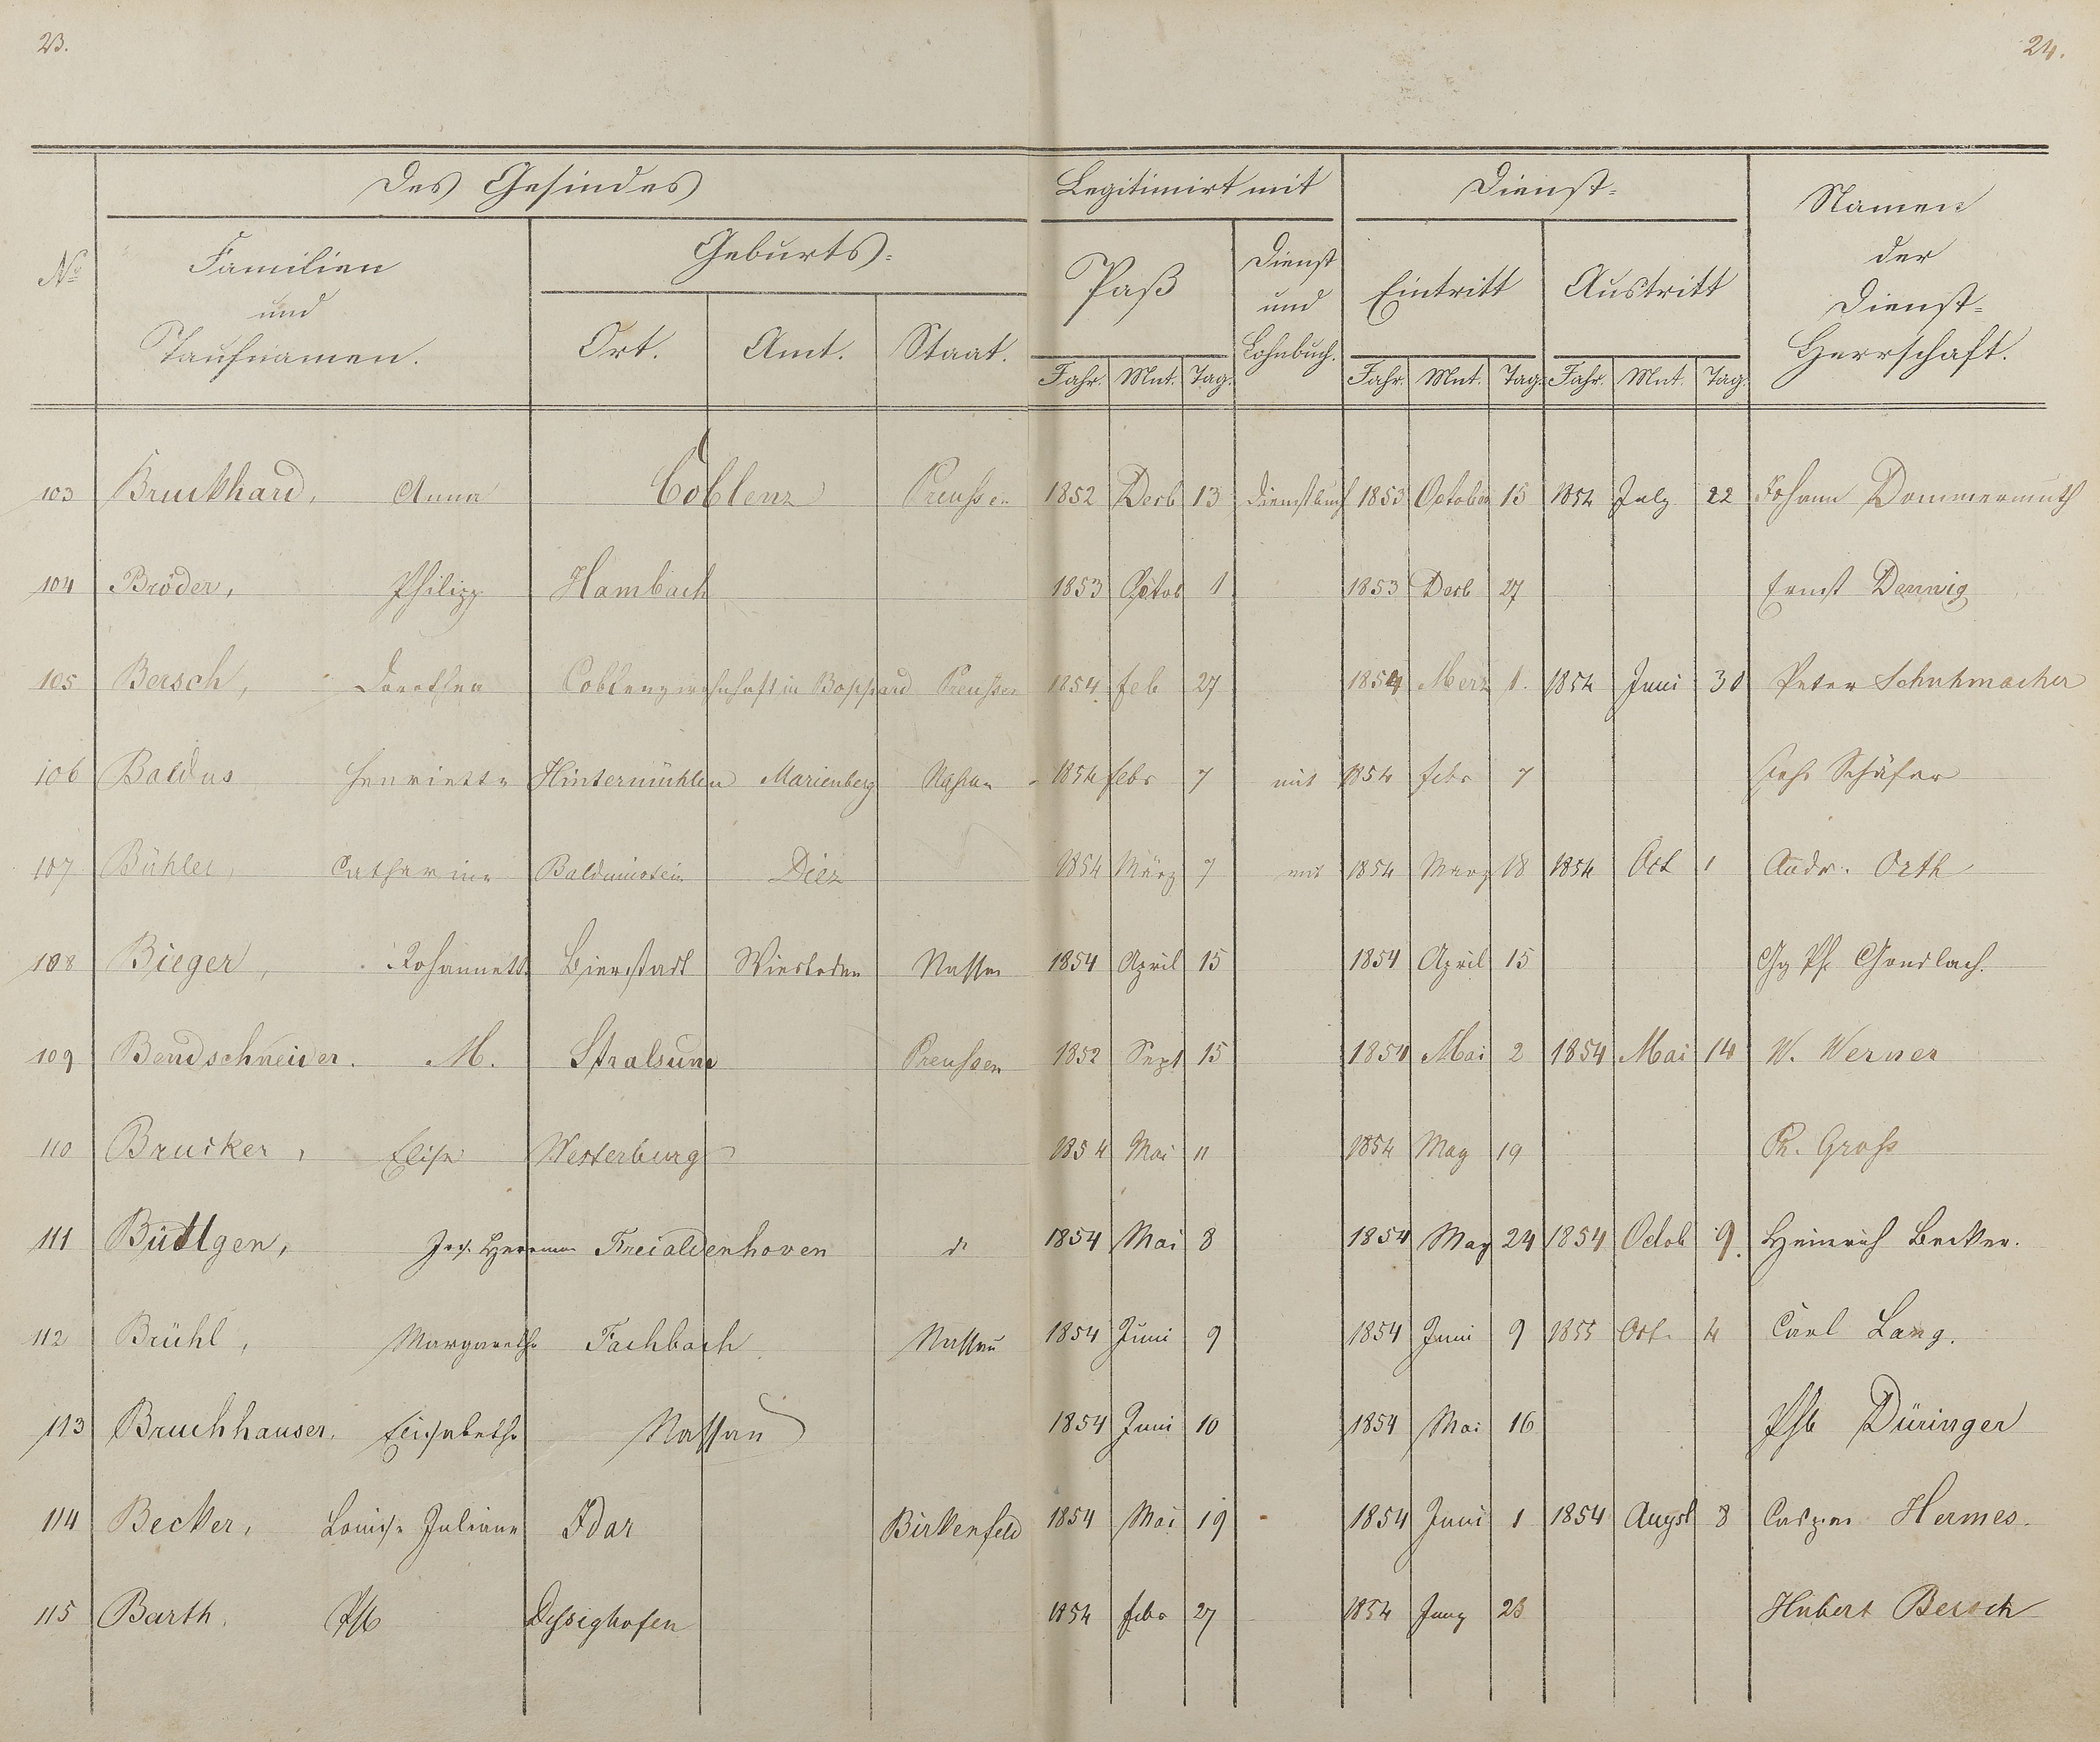 23.
24.
Des Gesindes
Legitimirt mit
Dienst-
Namen
der
Dienst-
Herrschaft.
No
Familien
und
Taufnamen.
Geburts-
Ort. Amt. Staat.
Paß
Dienst
und
Lohnbuch.
Eintritt
Austritt
Jahr. Mnt. Tag. Jahr. Mnt. Tag. Jahr. Mnt. Tag.
103 Bruckhard, Anna Coblenz Preußen 1852 Decb 13 Dienstbuch 1853 October 15 1854 July 22 Johann Dommermuth
104 Bröder, Philipp Hambach 1853 Octob 1 1853 Decb 27 Ernst Dennig
105 Bersch, Dorothea Coblenz wohnhaft in Boppard Preußen 1854 feb 27 1854 Merz 1. 1854 Juni 30 Peter Schuhmacher
106 Baldus Henriette Hintermühlen Marienberg Nassau 1854 febr 7 mit 1854 febr 7 Schäfer
107 Bühler, Catharine Balduinstein Diez 1854 März 7 mit 1854 März 18 1854 Oct 1 Andr. Orth
108 Bieger, Johannette Bierstadt Wiesbaden Nassau 1854 April 15 1854 April 15 Gg Ph. Gondlach.
109 Bendschneider. M. Stralsund Preußen 1852 Sept 15 1854 Mai 2 1854 Mai 14 W. Werner
110 Brucker, Elise Westerburg 1854 Mai 11 1854 May 19 Ph. Groß
111 Büttgen, Jos. Herrman Freialdenhoven d 1854 Mai 8 1854 May 24 1854 Octob 9. Heinrich Becker.
112 Brühl, Margarethe Fachbach Nassau 1854 Juni 9 1854 Juni 9 1855 Oct. 4 Carl Lang.
113 Bruchhauser, Elisabetha Nassau 1854 Juni 10 1854 Mai 16 Phil Düringer
114 Becker, Louise Juliane Idar Birkenfeld 1854 Mai 19 1854 Juni 1 1854 Augst 8 Caspar Hermes.
115 Barth, Phil Dessighofen 1854 febr 27 1854 Juny 23 Hubert Bersch